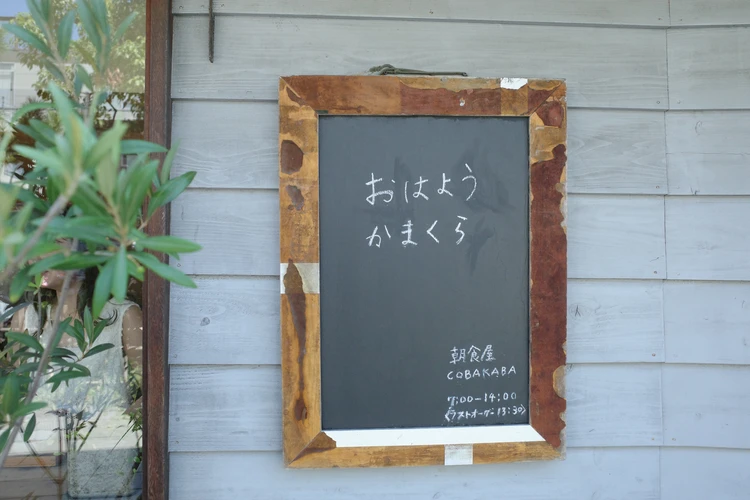 おはよう
かまくら
朝食屋
COBAKABA
7:00-14:00
(ラストオーダー 13:30)